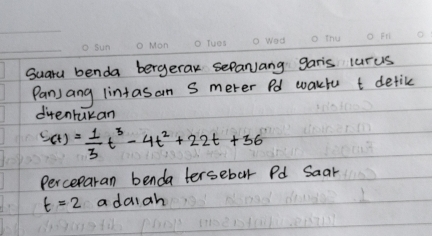 Sun Mon Tues Wed Thu Fri
Suatu benda bergerak sepanjang garis lurus
Panjang lintasan S meter Pd waktu t detik
ditentukan
S(t) = 1/3 t³ - 4t² + 22t + 36
Percepatan benda tersebut Pd Saat
t = 2 adalah